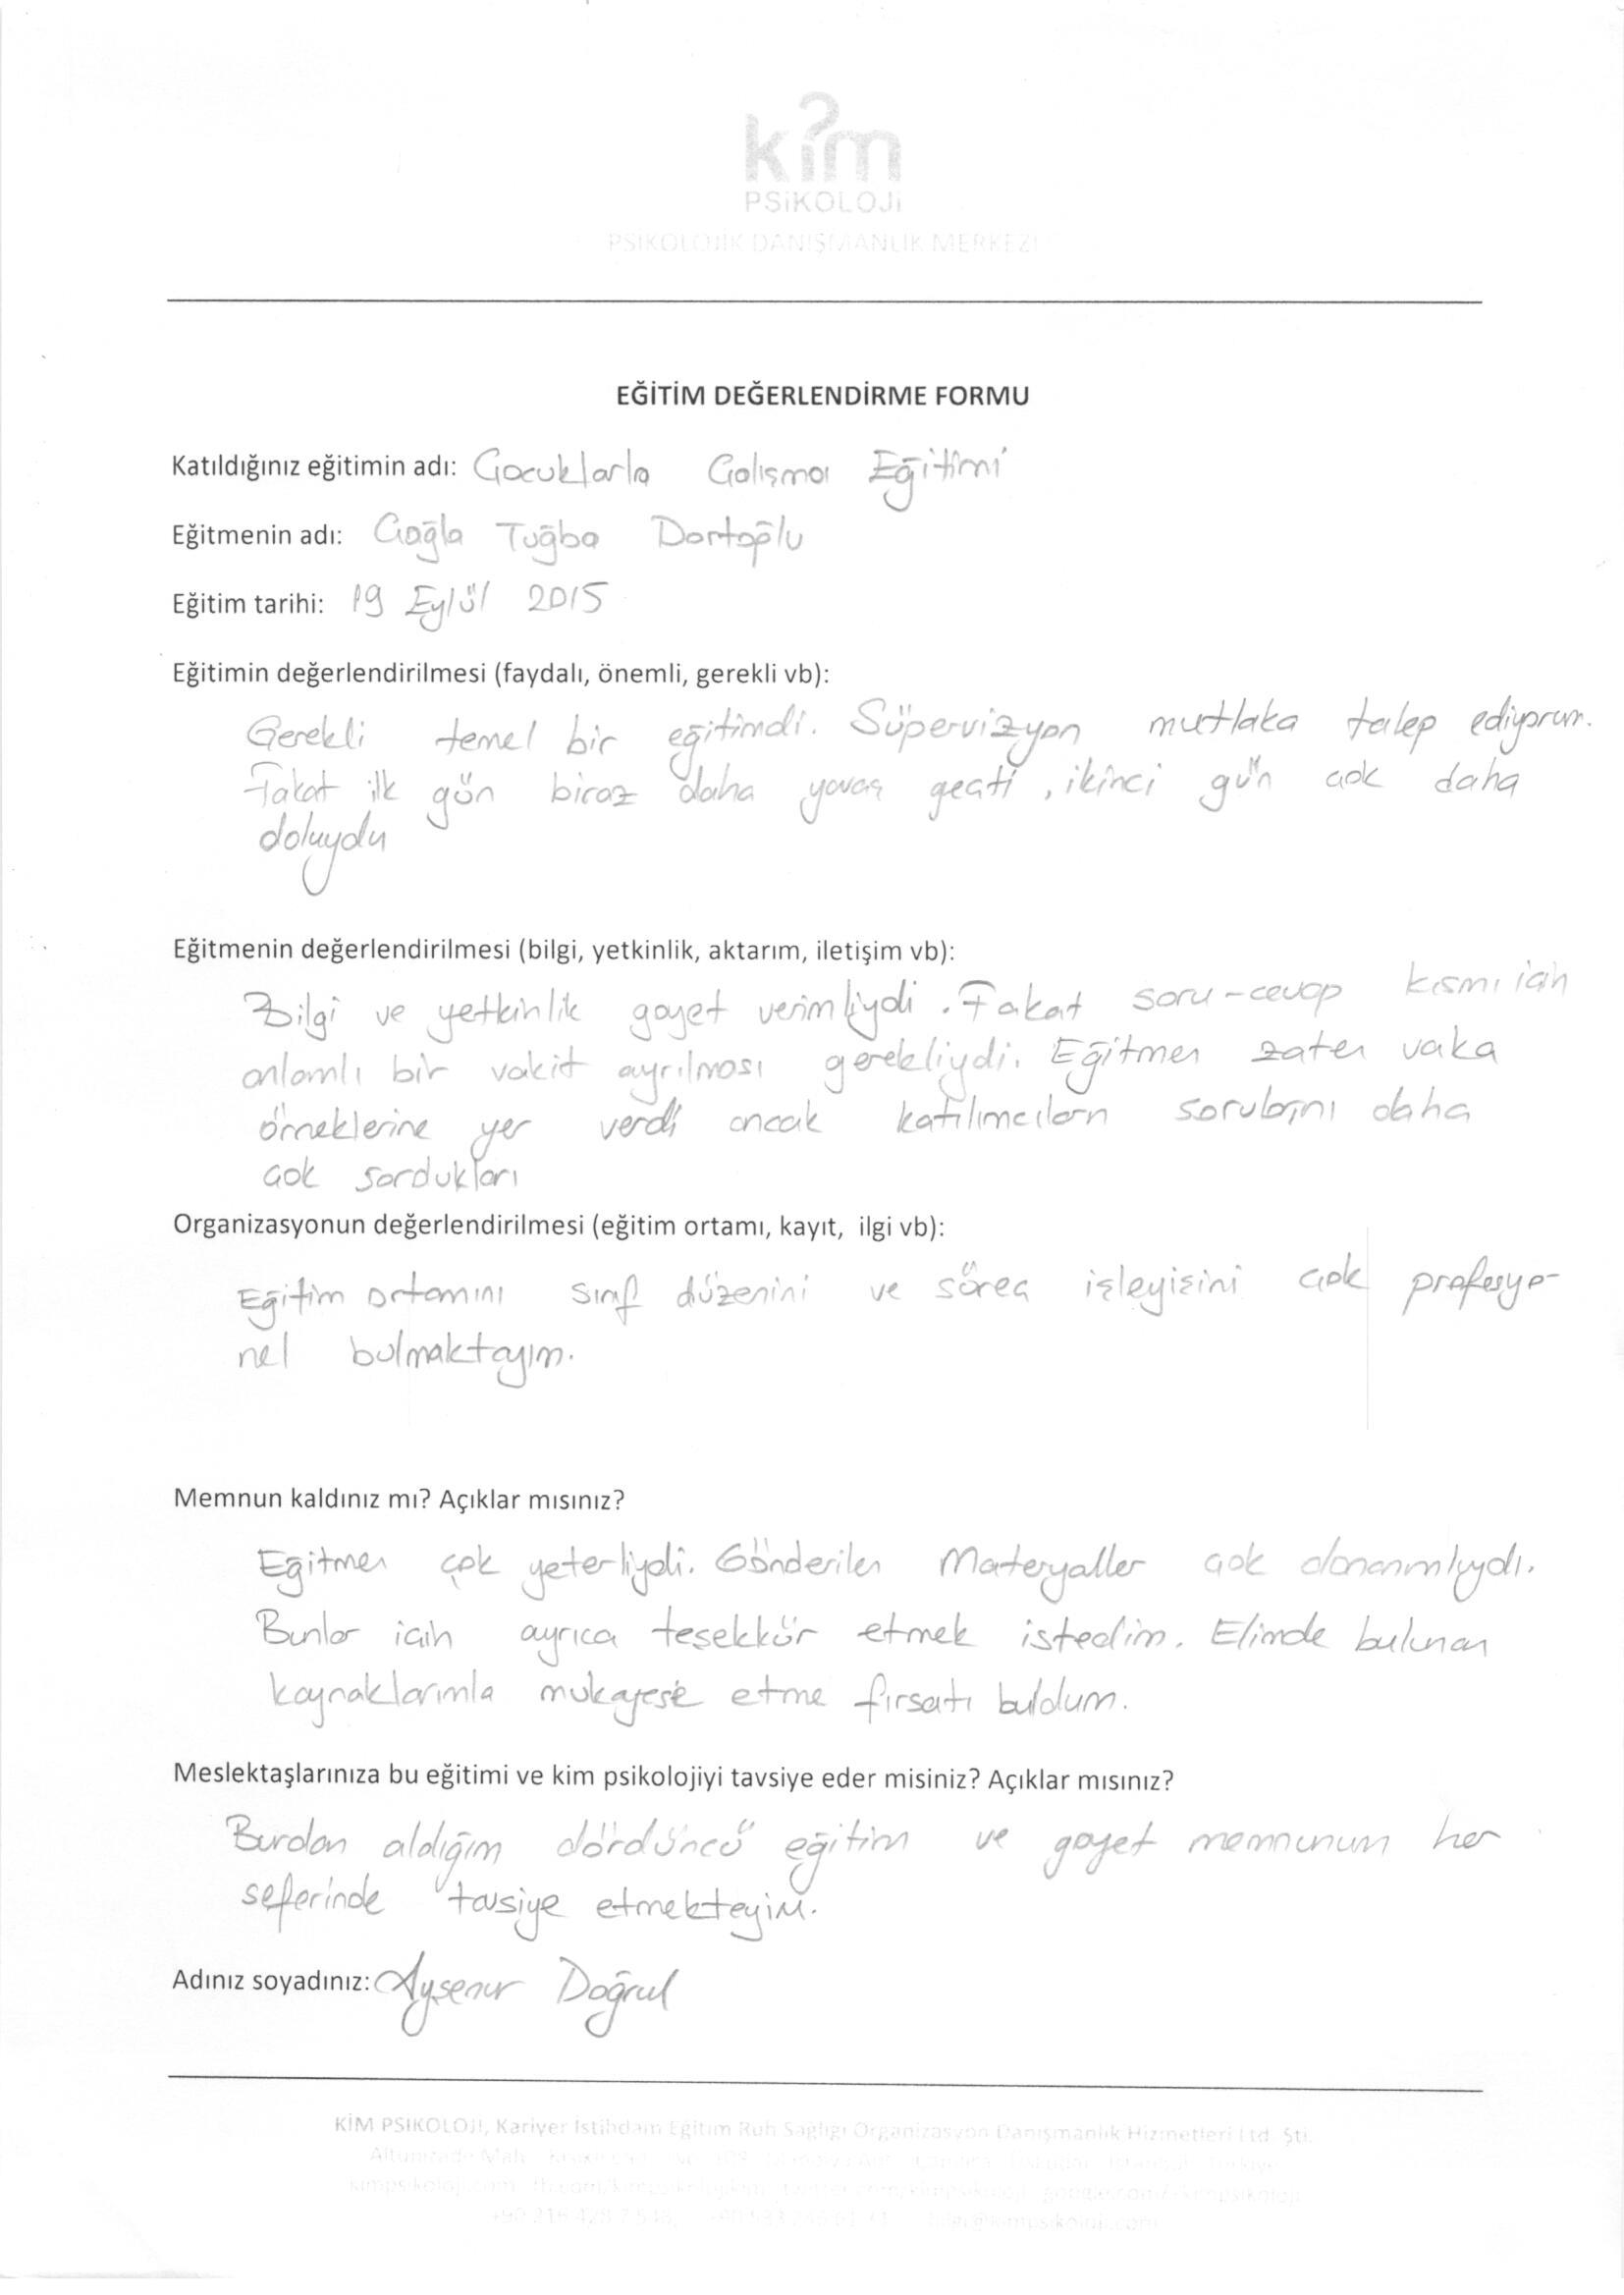 kim
PSiKOLOJi
PSİKOLOJİK DANIŞMANLIK MERKEZİ
EĞİTİM DEĞERLENDİRME FORMU
Katıldığınız eğitimin adı: Çocuklarla Çalışma Eğitimi
Eğitmenin adı: Çağla Tuğba Dortoğlu
Eğitim tarihi: 19 Eylül 2015
Eğitimin değerlendirilmesi (faydalı, önemli, gerekli vb):
Gerekli temel bir eğitimdi. Süpervizyon mutlaka talep ediyorum.
Fakat ilk gün biraz daha yavaş geçti, ikinci gün çok daha
doluydu
Eğitmenin değerlendirilmesi (bilgi, yetkinlik, aktarım, iletişim vb):
Bilgi ve yetkinlik gayet verimliydi. Fakat soru-cevap kısmı için
anlamlı bir vakit ayrılması gerekliydi. Eğitmen zaten vaka
örneklerine yer verdi ancak katılımcıların sorularını daha
çok sordukları
Organizasyonun değerlendirilmesi (eğitim ortamı, kayıt, ilgi vb):
Eğitim ortamını sınıf düzenini ve süreç işleyişini çok profesyo-
nel bulmaktayım.
Memnun kaldınız mı? Açıklar mısınız?
Eğitmen çok yeterliydi. Gönderilen Materyaller çok donanımlıydı.
Bunlar için ayrıca teşekkür etmek istedim. Elimde bulunan
kaynaklarımla mukayese etme fırsatı buldum.
Meslektaşlarınıza bu eğitimi ve kim psikolojiyi tavsiye eder misiniz? Açıklar mısınız?
Burdan aldığım dördüncü eğitim ve gayet memnunum her
seferinde tavsiye etmekteyim.
Adınız soyadınız: Ayşenur Doğrul
KİM PSIKOLOJI, Kariyer İstihdam Eğitim Ruh Sağlığı Organizasyon Danışmanlık Hizmetleri Ltd. Şti.